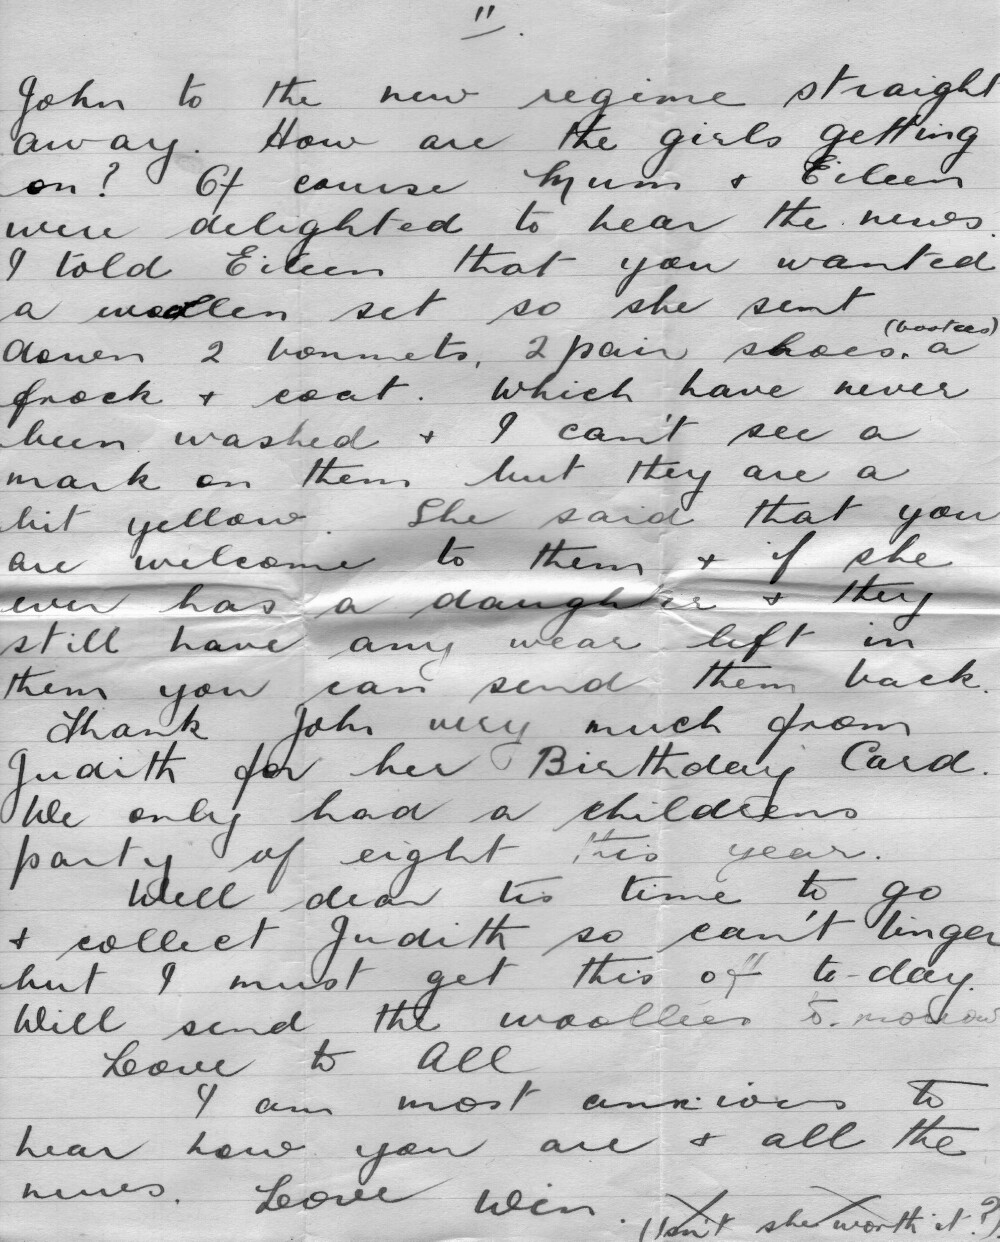 11.
John to the new regime straight
away. How are the girls getting
on? Of course Mum & Eileen
were delighted to hear the news.
I told Eileen that you wanted
a woollen set so she sent
(bootees)
down 2 bonnets, 2 pair shoes. a
frock & coat. Which have never
been washed & I can't see a
mark on them but they are a
bit yellow. She said that you
are welcome to them & if she
ever has a daughter & they
still have any wear left in
them you can send them back.
Thank John very much from
Judith for her Birthday Card.
We only had a childrens
party of eight this year.
Well dear tis time to go
& collect Judith so can't linger
but I must get this off to-day.
Will send the woollies to-morrow
Love to All
I am most anxious to
hear how you are & all the
news. Love Win.
(Isn't she worth it?)